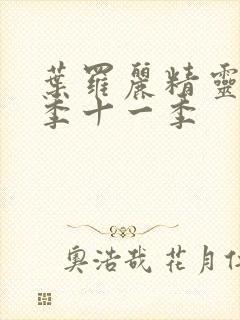 葉羅麗精靈
季十一季
奧浩哉 花月仁